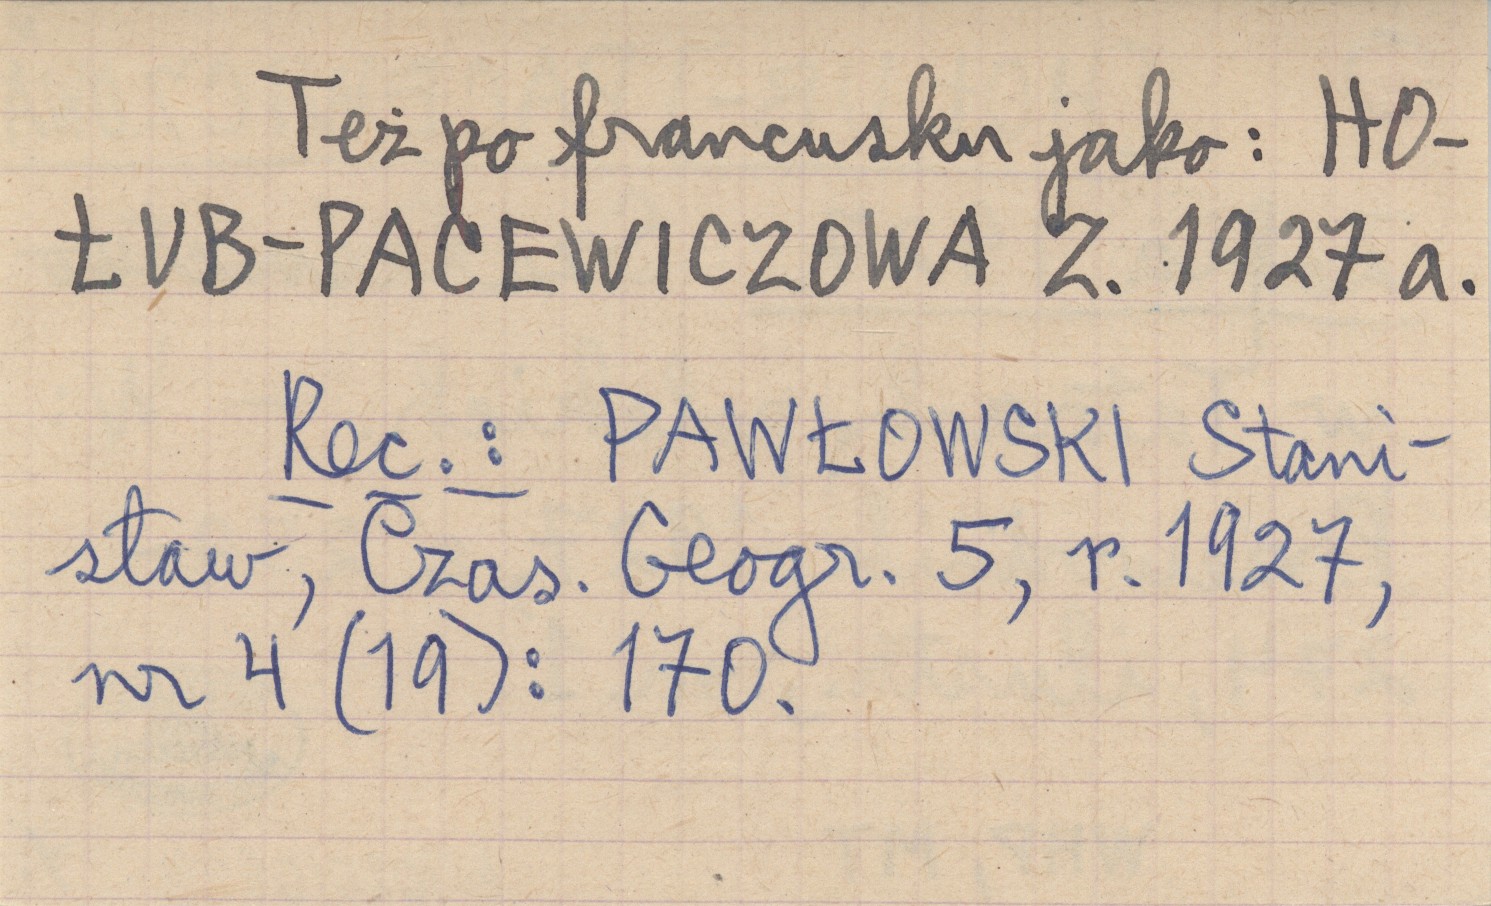 Też po francusku jako: HO-
ŁUB-PACEWICZOWA Z. 1927 a.
Rec.: PAWŁOWSKI Stani-
sław, Czas. Geogr. 5, r. 1927,
nr 4 (19): 170.